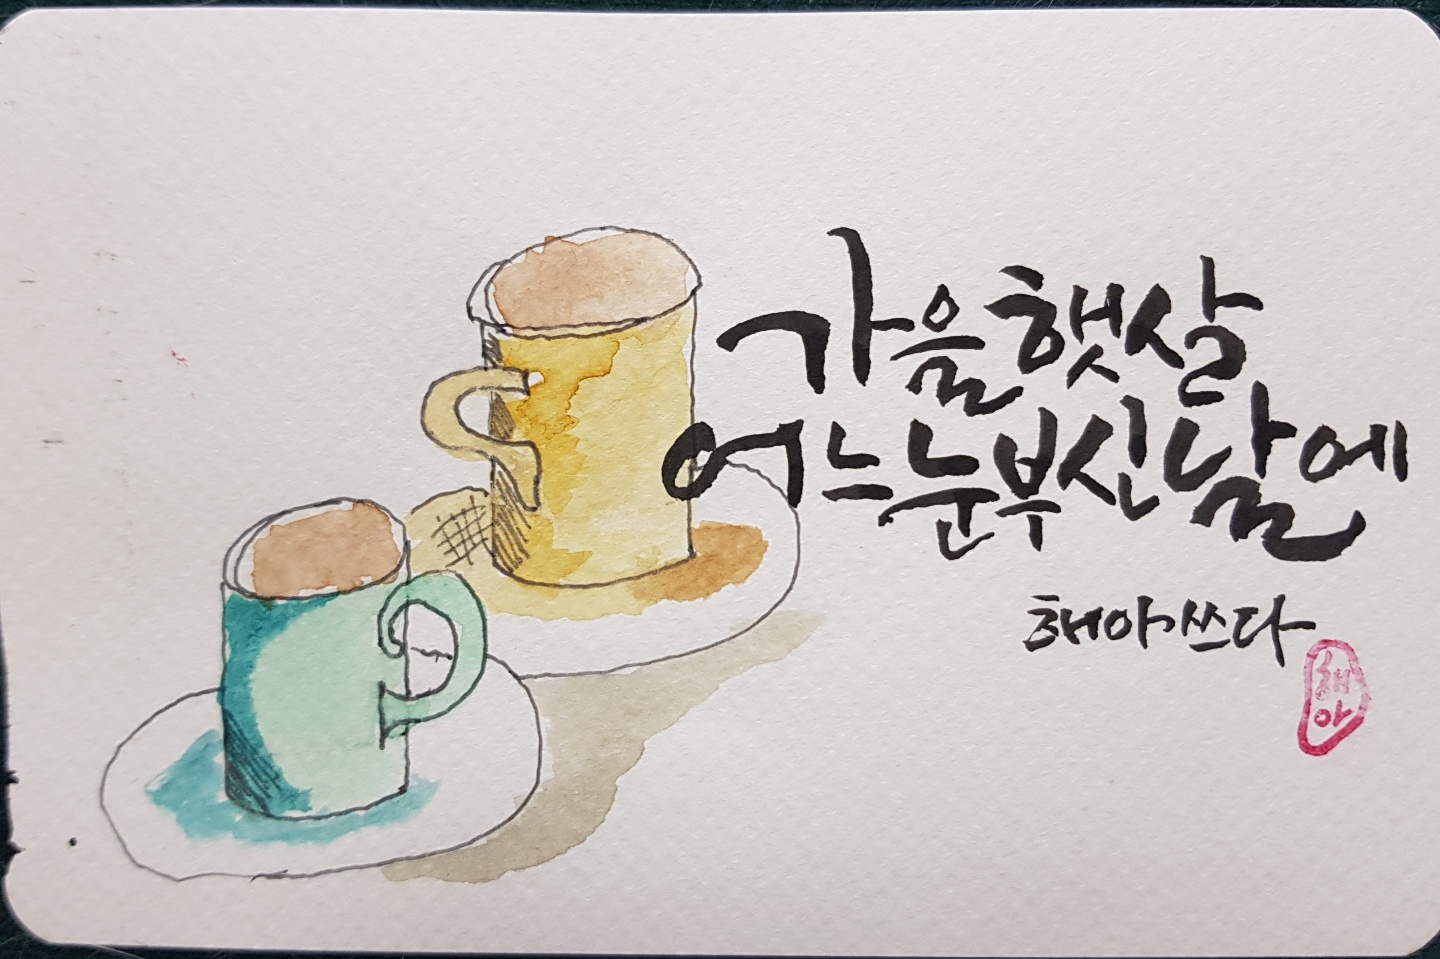 가을햇살
어느눈부신날에
해아쓰다
해아